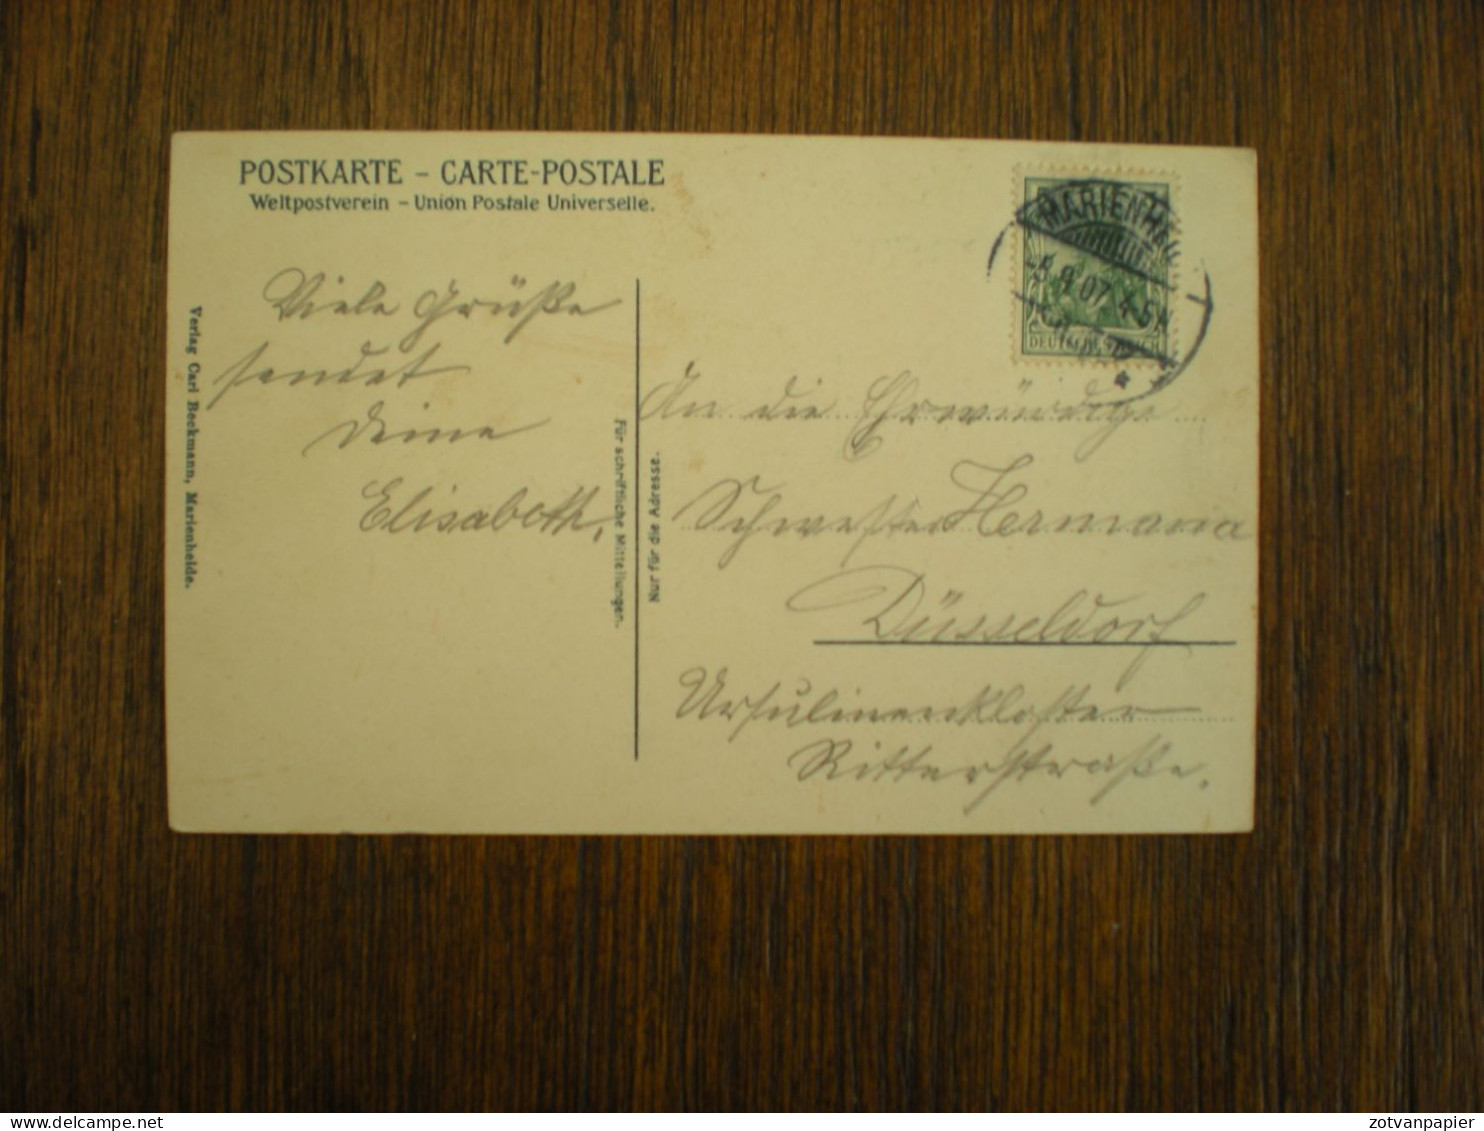 POSTKARTE – CARTE-POSTALE
Weltpostverein – Union Postale Universelle.
MARIENHEI
5.9.07. 4-5N
DEUTSCHES REICH
Viele Grüße
sendet
Deine
Elisabeth.
An die Ehrwürdige
Schwester Hermana
Düsseldorf
Ursulinenkloster
Ritterstraße.
Für schriftliche Mitteilungen.
Nur für die Adresse.
Verlag Carl Beckmann, Marienheide.
zotvanpapier